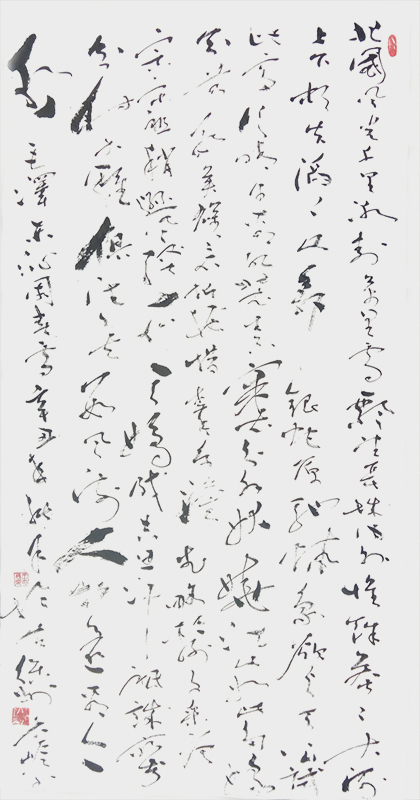 北國風光千里冰封萬里雪飄望長城內外惟餘莽々大河
上下頓失滔々山舞銀蛇原馳蠟象欲與天公試
比高須晴日看紅裝素裹分外妖嬈江山如此多嬌
引無數英雄競折腰惜秦皇漢武略輸文采唐
宗宋祖稍遜風騷一代天驕成吉思汗只識彎
弓射大雕俱往矣數風流人物還看今
朝
毛澤東沁園春雪辛丑